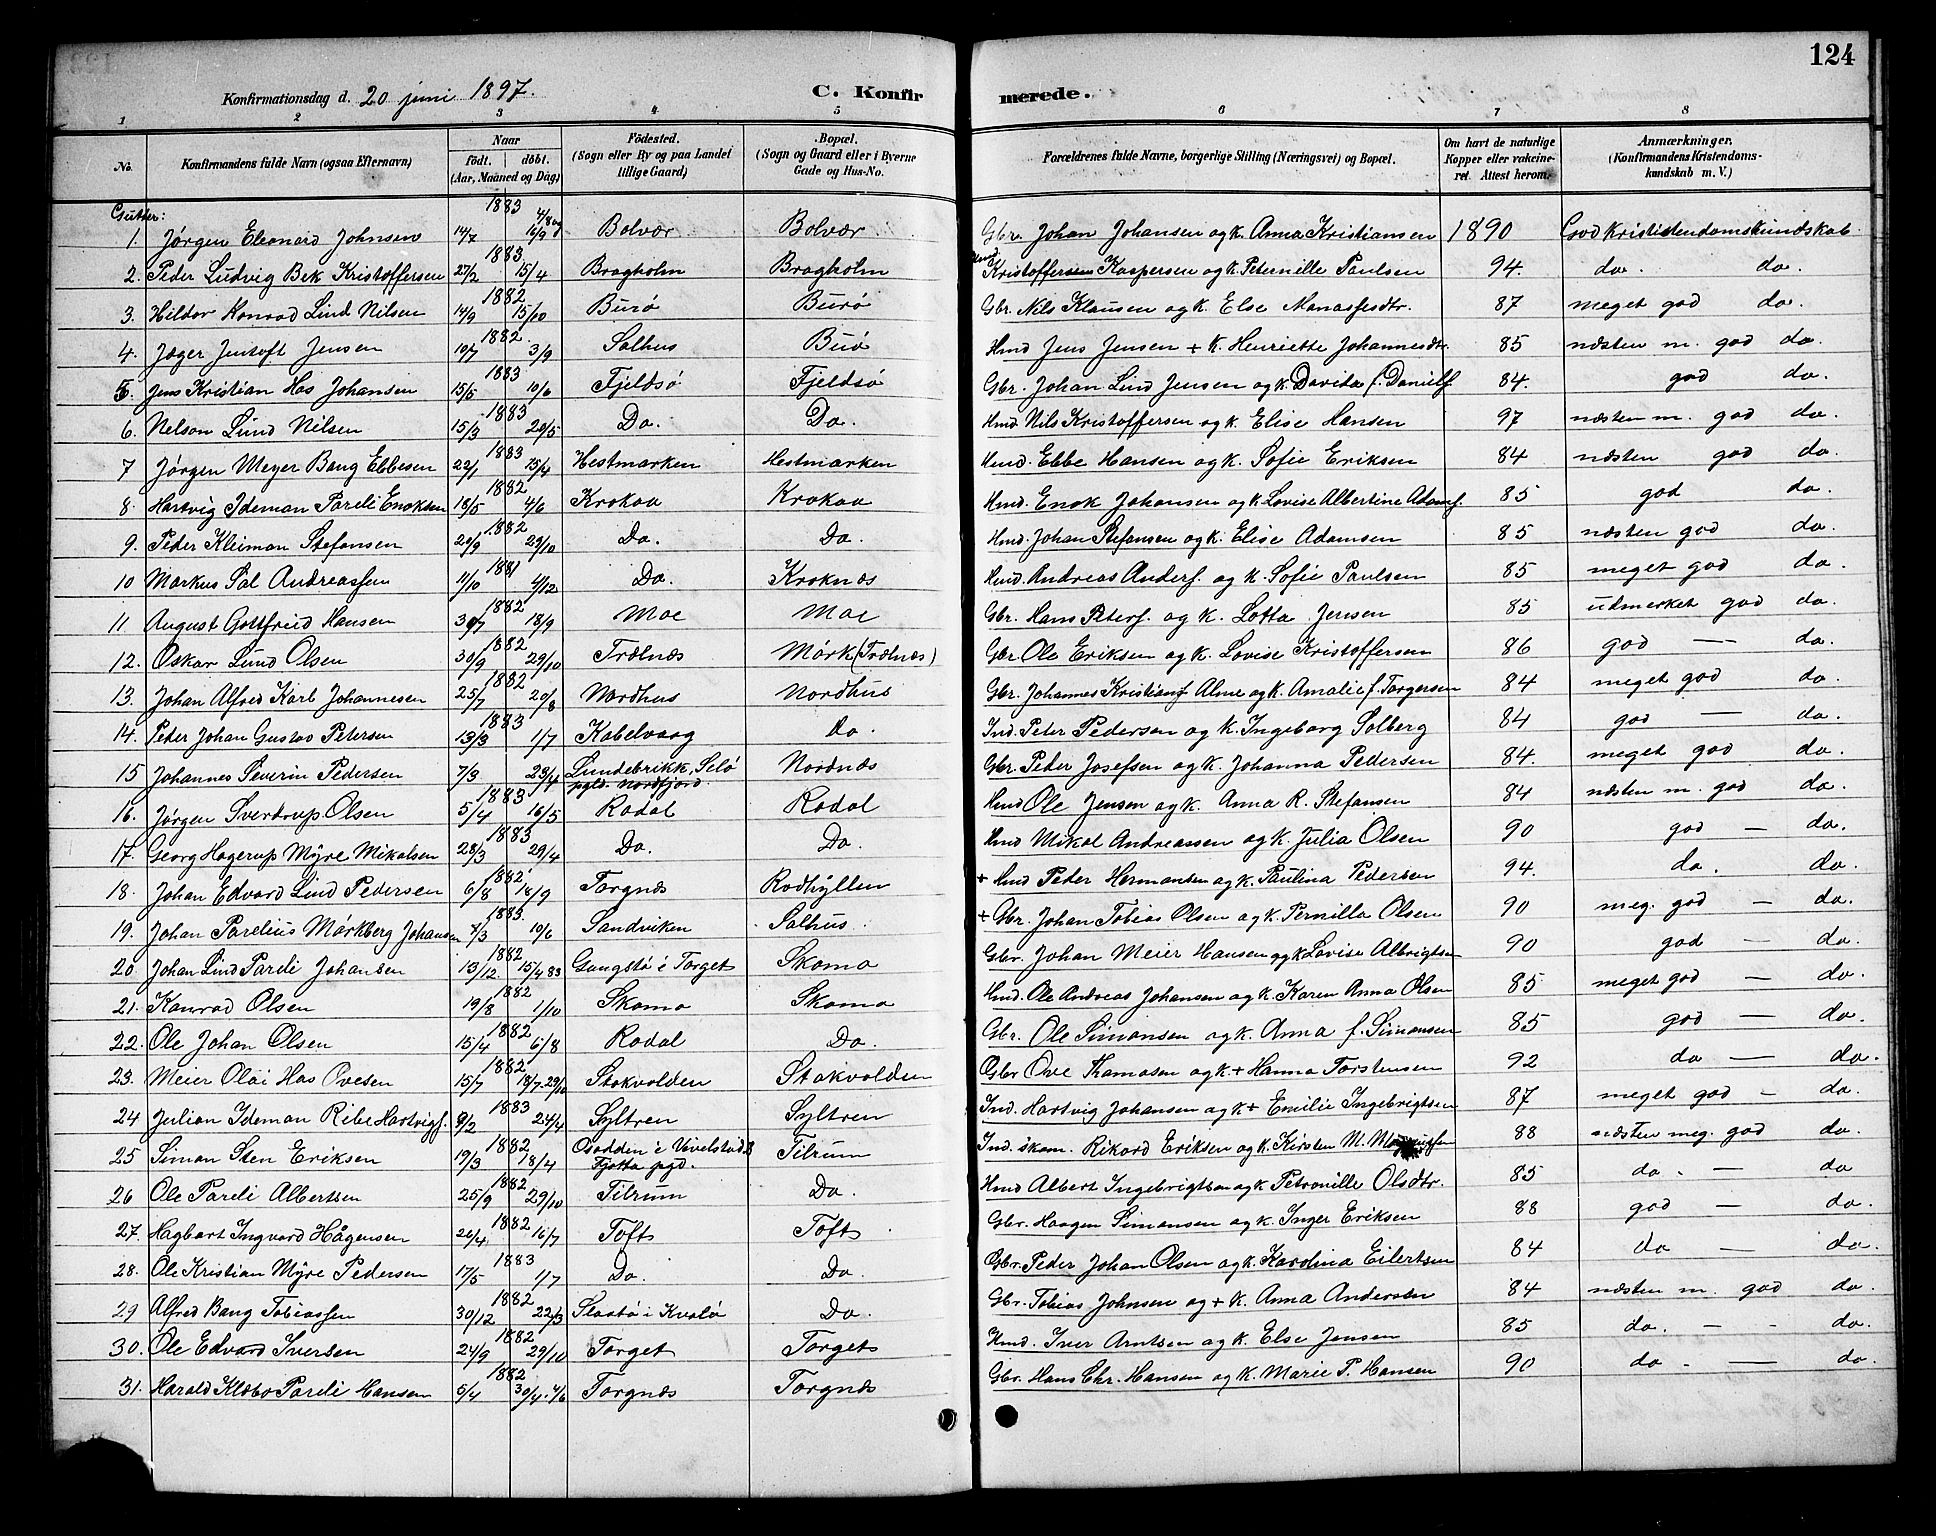 124
Konfirmationsdag d. 20 juni 1897. C. Konfirmerede.
1 2 3 4 5 6 7 8
No. Konfirmandens fulde Navn (ogsaa Efternavn) Naar født. døbt. (Aar, Maaned og Dag) Födested. (Sogn eller By og paa Landet tillige Gaard) Bopæl. (Sogn og Gaard eller i Byerne Gade og Hus-No. Forældrenes fulde Navne, borgerlige Stilling (Næringsvei) og Bopæl. Om havt de naturlige Kopper eller vakcineret. Attest herom. Anmærkninger. (Konfirmandens Kristendomskundskab m. V.)
Gutter:
1. Jørgen Eleonard Johnsen 1883 14/7 16/9 Bolvær Bolvær Gbr. Johan Johansen og K. Anna Kristiansen 1890 God Kristendomskundskab
2. Peder Ludvig Bek Kristoffersen 1883 27/2 15/4 Bragholm Bragholm Kristoffersen Kaspersen og K. Peternille Paulsen 94. do. do.
3. Hildor Konrad Lind Nilsen 1882 14/9 15/10 Burø Burø Gbr. Nils Klausen og K. Else Manassesdtr. 87 meget god do.
4. Jæger Jentoft Jensen 1882 19/7 3/9 Salhus Burø Hmd Jens Jensen + K. Henriette Johannesdtr. 85 næsten m. god do.
5. Jens Kristian Has Johansen 1883 15/5 10/6 Fjeldsø Fjeldsø Gbr. Johan Lind Jensen og K. Davida f. Danielf. 84. god do.
6. Nelson Lund Nilsen 1883 15/3 20/5 Do. Do. Hmd. Nils Kristoffersen og K. Elise Hansen 97 næsten m. god do.
7 Jørgen Meyer Bang Ebbesen 1883 22/1 15/4 Hestmarken Hestmarken Hmd. Ebbe Hansen og K. Sofie Eriksen 84 næsten god do.
8. Hartvig Ideman Pareli Enoksen 1882 18/5 4/6 Krokaa Krokaa Hmd. Enok Johansen og K. Lovise Albertine Adamf. 85 god do.
9. Peder Kleiman Stefansen 1882 20/9 29/10 Do. Do. Hmd. Johan Stefansen og K. Elise Adamsen 85 næsten god do.
10 Markus Sal Andreassen 1881 11/10 4/12 Do. Kroknæs Hmd. Andreas Anderf. og K. Sofie Paulsen 85 meget god do.
11. August Gottfreid Hansen 1882 30/7 18/9 Moe Moe Gbr. Hans Peterf. og K. Lotta Jensen 85 udmerket god do.
12. Oskar Lund Olsen 1882 30/9 29/10 Trælnæs Mørk (Trælnæs) Gbr Ole Eriksen og K. Lovise Kristoffersen 86 god — do.
13. Johan Alfred Karl Johannesen 1882 25/7 20/8 Nordhus Nordhus Gbr. Johannes Kristianf Alme og K. Amalie f. Torgersen 84 meget god do.
14. Peder Johan Gustav Petersen 1883 13/3 1/7 Kabelvaag do. Ind. Peter Pedersen og K. Ingeborg Solberg 84 god — do.
15 Johannes Severin Pedersen 7/3 23/4 Lundebrikk, Selø pgld. Nordfjord. Nordnæs Gbr. Peder Josefsen og K. Johanna Pedersen 84. meget god do.
16. Jørgen Sverdrup Olsen 1883 5/4 16/5 Rodal Rodal Hmd Ole Jensen og K. Anna R. Stefansen 84 næsten m. god do.
17. Georg Hagerup Myre Mikalsen 1883 28/3 29/4 Do. Do. Hmd Mikal Andreassen og K. Julia Olsen 90 god — do.
18. Johan Edvard Lind Pedersen 1882 6/8 18/9 Torgnæs Rodhyllen + Hmd Peder Hermansen og K. Paulina Pedersen 94. do. do
19. Johan Parelius Mørkberg Johansen 1883. 4/3 10/6 Sandviken Salhus + Gbr. Johan Tobias Olsen og K. Pernilla Olsen 90 meg. god — do.
20. Johan Lind Pareli Johansen 1882 13/12 15/4 83 Gungstø i Torget Skomo Gbr. Johan Meier Hansen og K Lovise Albrigtsen 90 god — do.
21. Konrad Olsen 1882 19/8 1/10 Skomo Skomo Hmd. Ole Andreas Johansen og K. Karen Anna Olsen 85 meget god — do.
22. Ole Johan Olsen 1882 15/4 6/8 Rodal Do. Gbr. Ole Simonsen og K. Anna f. Simonsen 85 god — do.
23. Meier Olai Has Ovesen 1882 15/7 18/7. 29/10 Stokvolden Stokvolden Gbr Ove Thomasen og K. + Hanna Torstensen 92 do — do.
24 Julian Ideman Ribe Hartvigf. 1883 9/2 24/4 Syltren Syltren Ind. Hartvig Johansen og K + Emilie Ingebrigtsen 87 meget god — do.
25 Simon Sten Eriksen 1882 19/3 18/4 Oddden i Vevelstad Tjøtta pgd. Tilrum Ind. skom. Rikard Eriksen og K. Kirsten M. 88 næsten meg. god do.
26 Ole Pareli Albertsen 1882 25/9 29/10 Tilrum Do. Hmd Albert Ingebrigtsen og K. Petronille Olsdtr. 85 do. — do
27. Hagbart Ingvard Hågensen 1882 26/4 16/7 Toft Toft Gbr. Haagen Simonsen og K. Inger Eriksen 88 god — do.
28. Ole Kristian Myre Pedersen 1883 17/5 1/7 Do. Do. Gbr. Peder Johan Olsen og K. Karolina Eilertsen 84 do — do.
29 Alfred Bang Tobiassen 1882 30/12 22/3 Slaatø i Kvalø Do. Gbr. Tobias Johnsen og + K. Anna Andersen 84 næsten m. god do.
30. Ole Edvard Iversen 1882 24/9 29/10 Torget Torget Hmd. Iver Arntsen og K. Else Jensen 85 do. - - do.
31. Harald Klæbo Pareli Hansen 1882 5/4 30/4. 4/6 Torgnæs Torgnæs Gbr. Hans Chr. Hansen og K. Marie P. Hansen 90 do. — do.